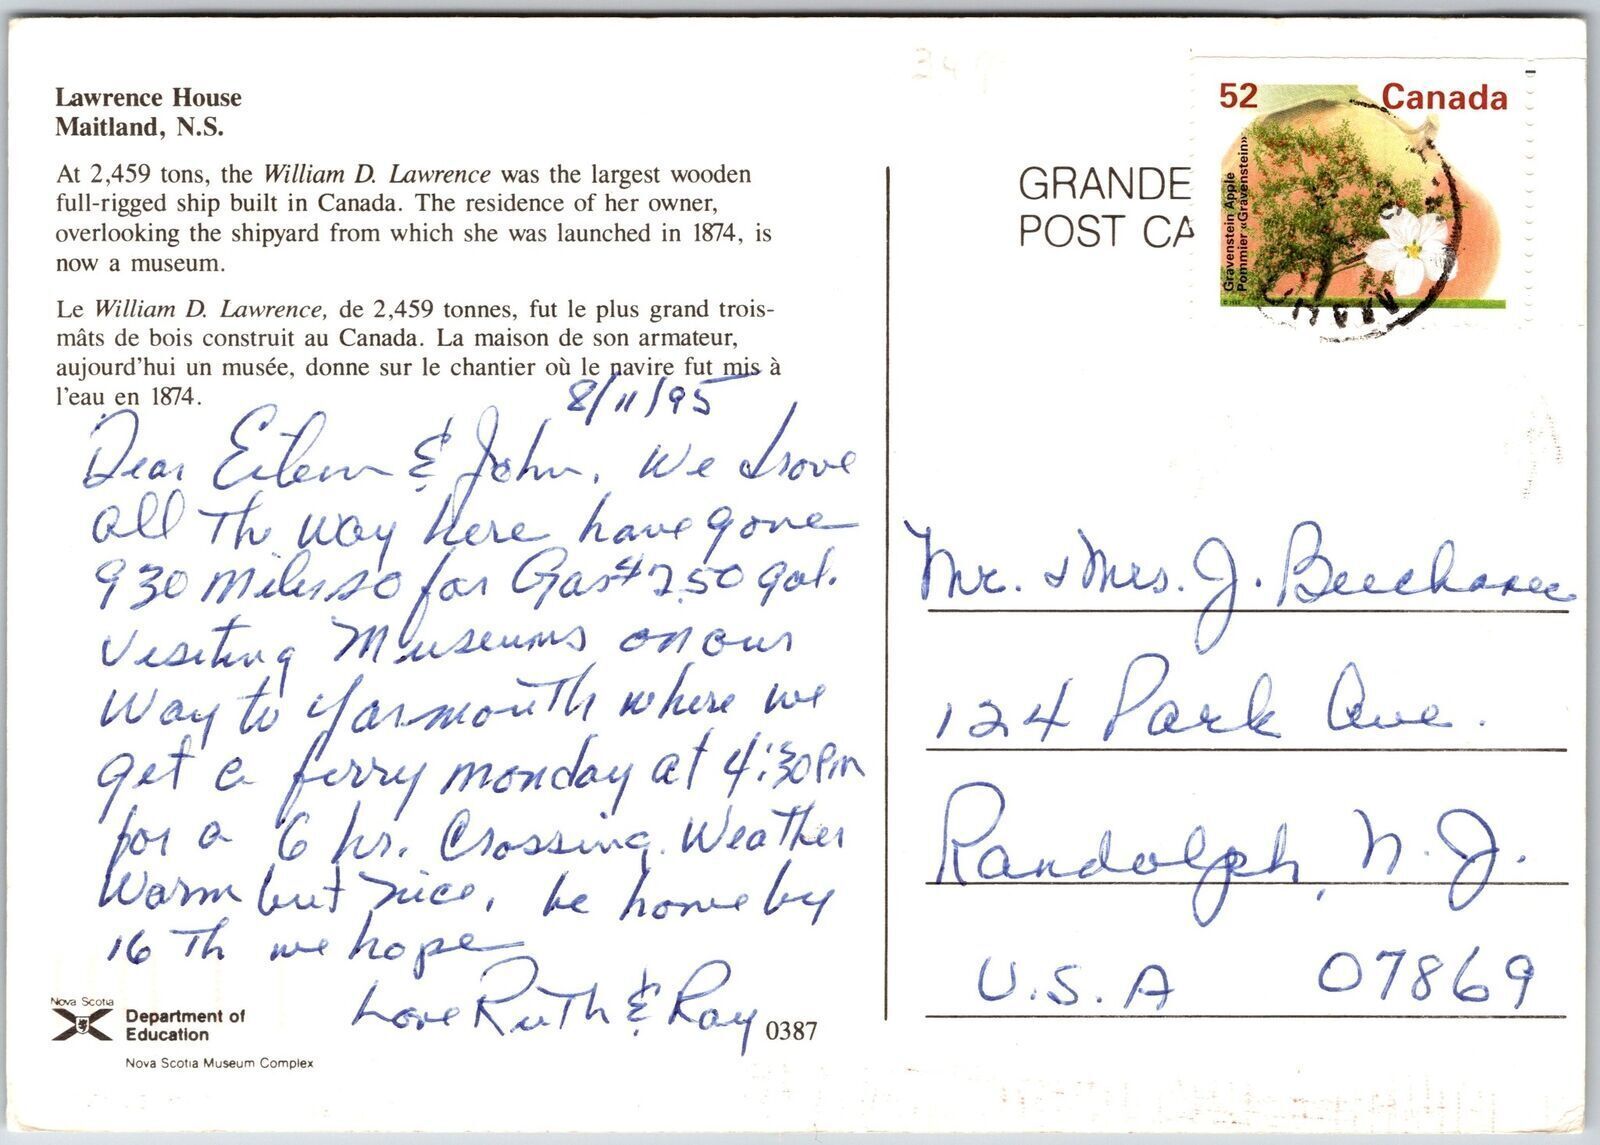 Lawrence House
Maitland, N.S.
At 2,459 tons, the William D. Lawrence was the largest wooden
full-rigged ship built in Canada. The residence of her owner,
overlooking the shipyard from which she was launched in 1874, is
now a museum.
Le William D. Lawrence, de 2,459 tonnes, fut le plus grand trois-
mâts de bois construit au Canada. La maison de son armateur,
aujourd'hui un musée, donne sur le chantier où le navire fut mis à
l'eau en 1874.
8/11/95
Dear Eileen & John, We drove
all The way here have gone
930 Miles so far Gas $2.50 gal.
Visiting Museums on our
Way to Yarmouth where we
get a ferry monday at 4:30 Pm
for a 6 hr. Crossing. Weather
Warm but nice. be home by
16 Th we hope
Love Ruth & Ray
0387
Nova Scotia
Department of
Education
Nova Scotia Museum Complex
GRANDE
POST CA
52 Canada
Gravenstein Apple
Pommier «Gravenstein»
Mr. & Mrs. J.
124 Park Ave.
Randolph, N.J.
U.S.A 07869